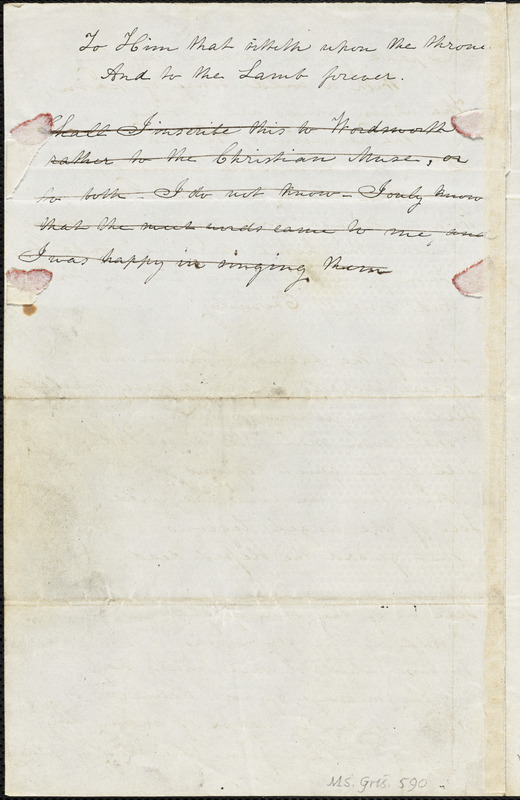 To Him that sitteth upon the throne
And to the Lamb forever.
Shall I inscribe this to Wordsworth
rather to the Christian Muse, or
to both - I do not know - I only know
that the words came to me, and
I was happy in singing them
MS. Gris. 590